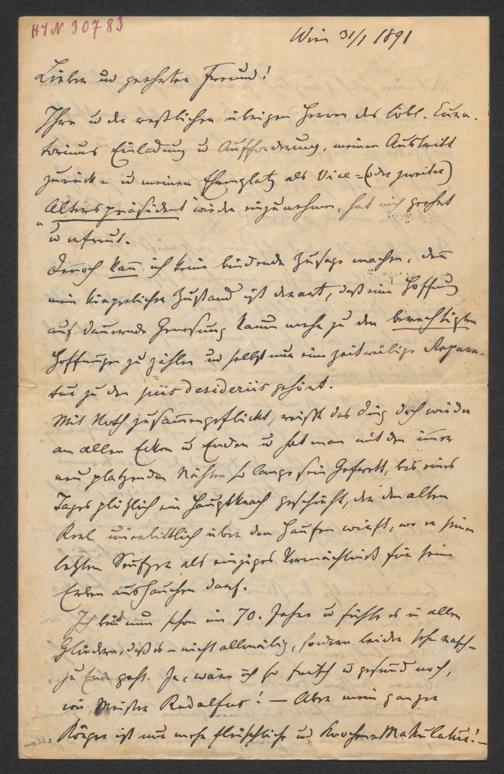 HIN 30783
Wien 31/1 1891
Lieber und geehrter Freund!
Ihre u der restlichen übrigen Herren des löbl. Cura-
toriums Einladung u Aufforderung, meinen Austritt
zurück- u meinen Ehrenplatz als Vice-(oder zweiter)
"Alterspräsident" wieder einzunehmen, hat mich geehrt
u erfreut.
Dennoch kann ich keine bindende Zusage machen, denn
mein körperlicher Zustand ist derart, daß eine Hoffnung
auf dauernde Genesung kaum mehr zu den berechtigten
Hoffnungen zu zählen und selbst nur eine zeitweilige Repara-
tur zu den piis desideriis gehört.
Mit Noth zusammengeflickt, reißt das Ding doch wieder
an allen Ecken u Enden u hat man mit den immer
neu platzenden Nähten so lange sein Gefrett, bis eines
Tages plötzlich ein Hauptkrach geschieht, der den alten
Kerl unerbittlich über den Haufen wirft, wo er seinen
letzten Seufzer als einziges Vermächtniß für seine
Erben aushauchen darf.
Ich bin nun schon im 70. Jahre u fühle es in allen
Gliedern, daß es – nicht allmälig, sondern leider sehr rasch –
zu Ende geht. Ja, wäre ich so frisch u gesund noch,
wie Meister Rudolfus! – Aber mein ganzer
Körper ist nur mehr fleischliche und Knochen Makulatur! –